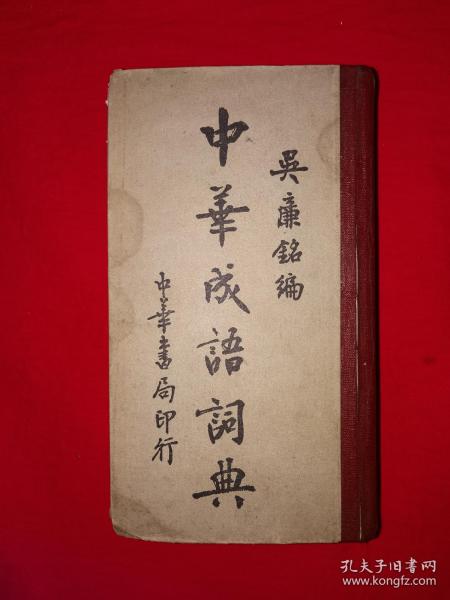 吳廉銘編
中華成語詞典
中華書局印行
孔夫子旧书网
www.kongfz.com